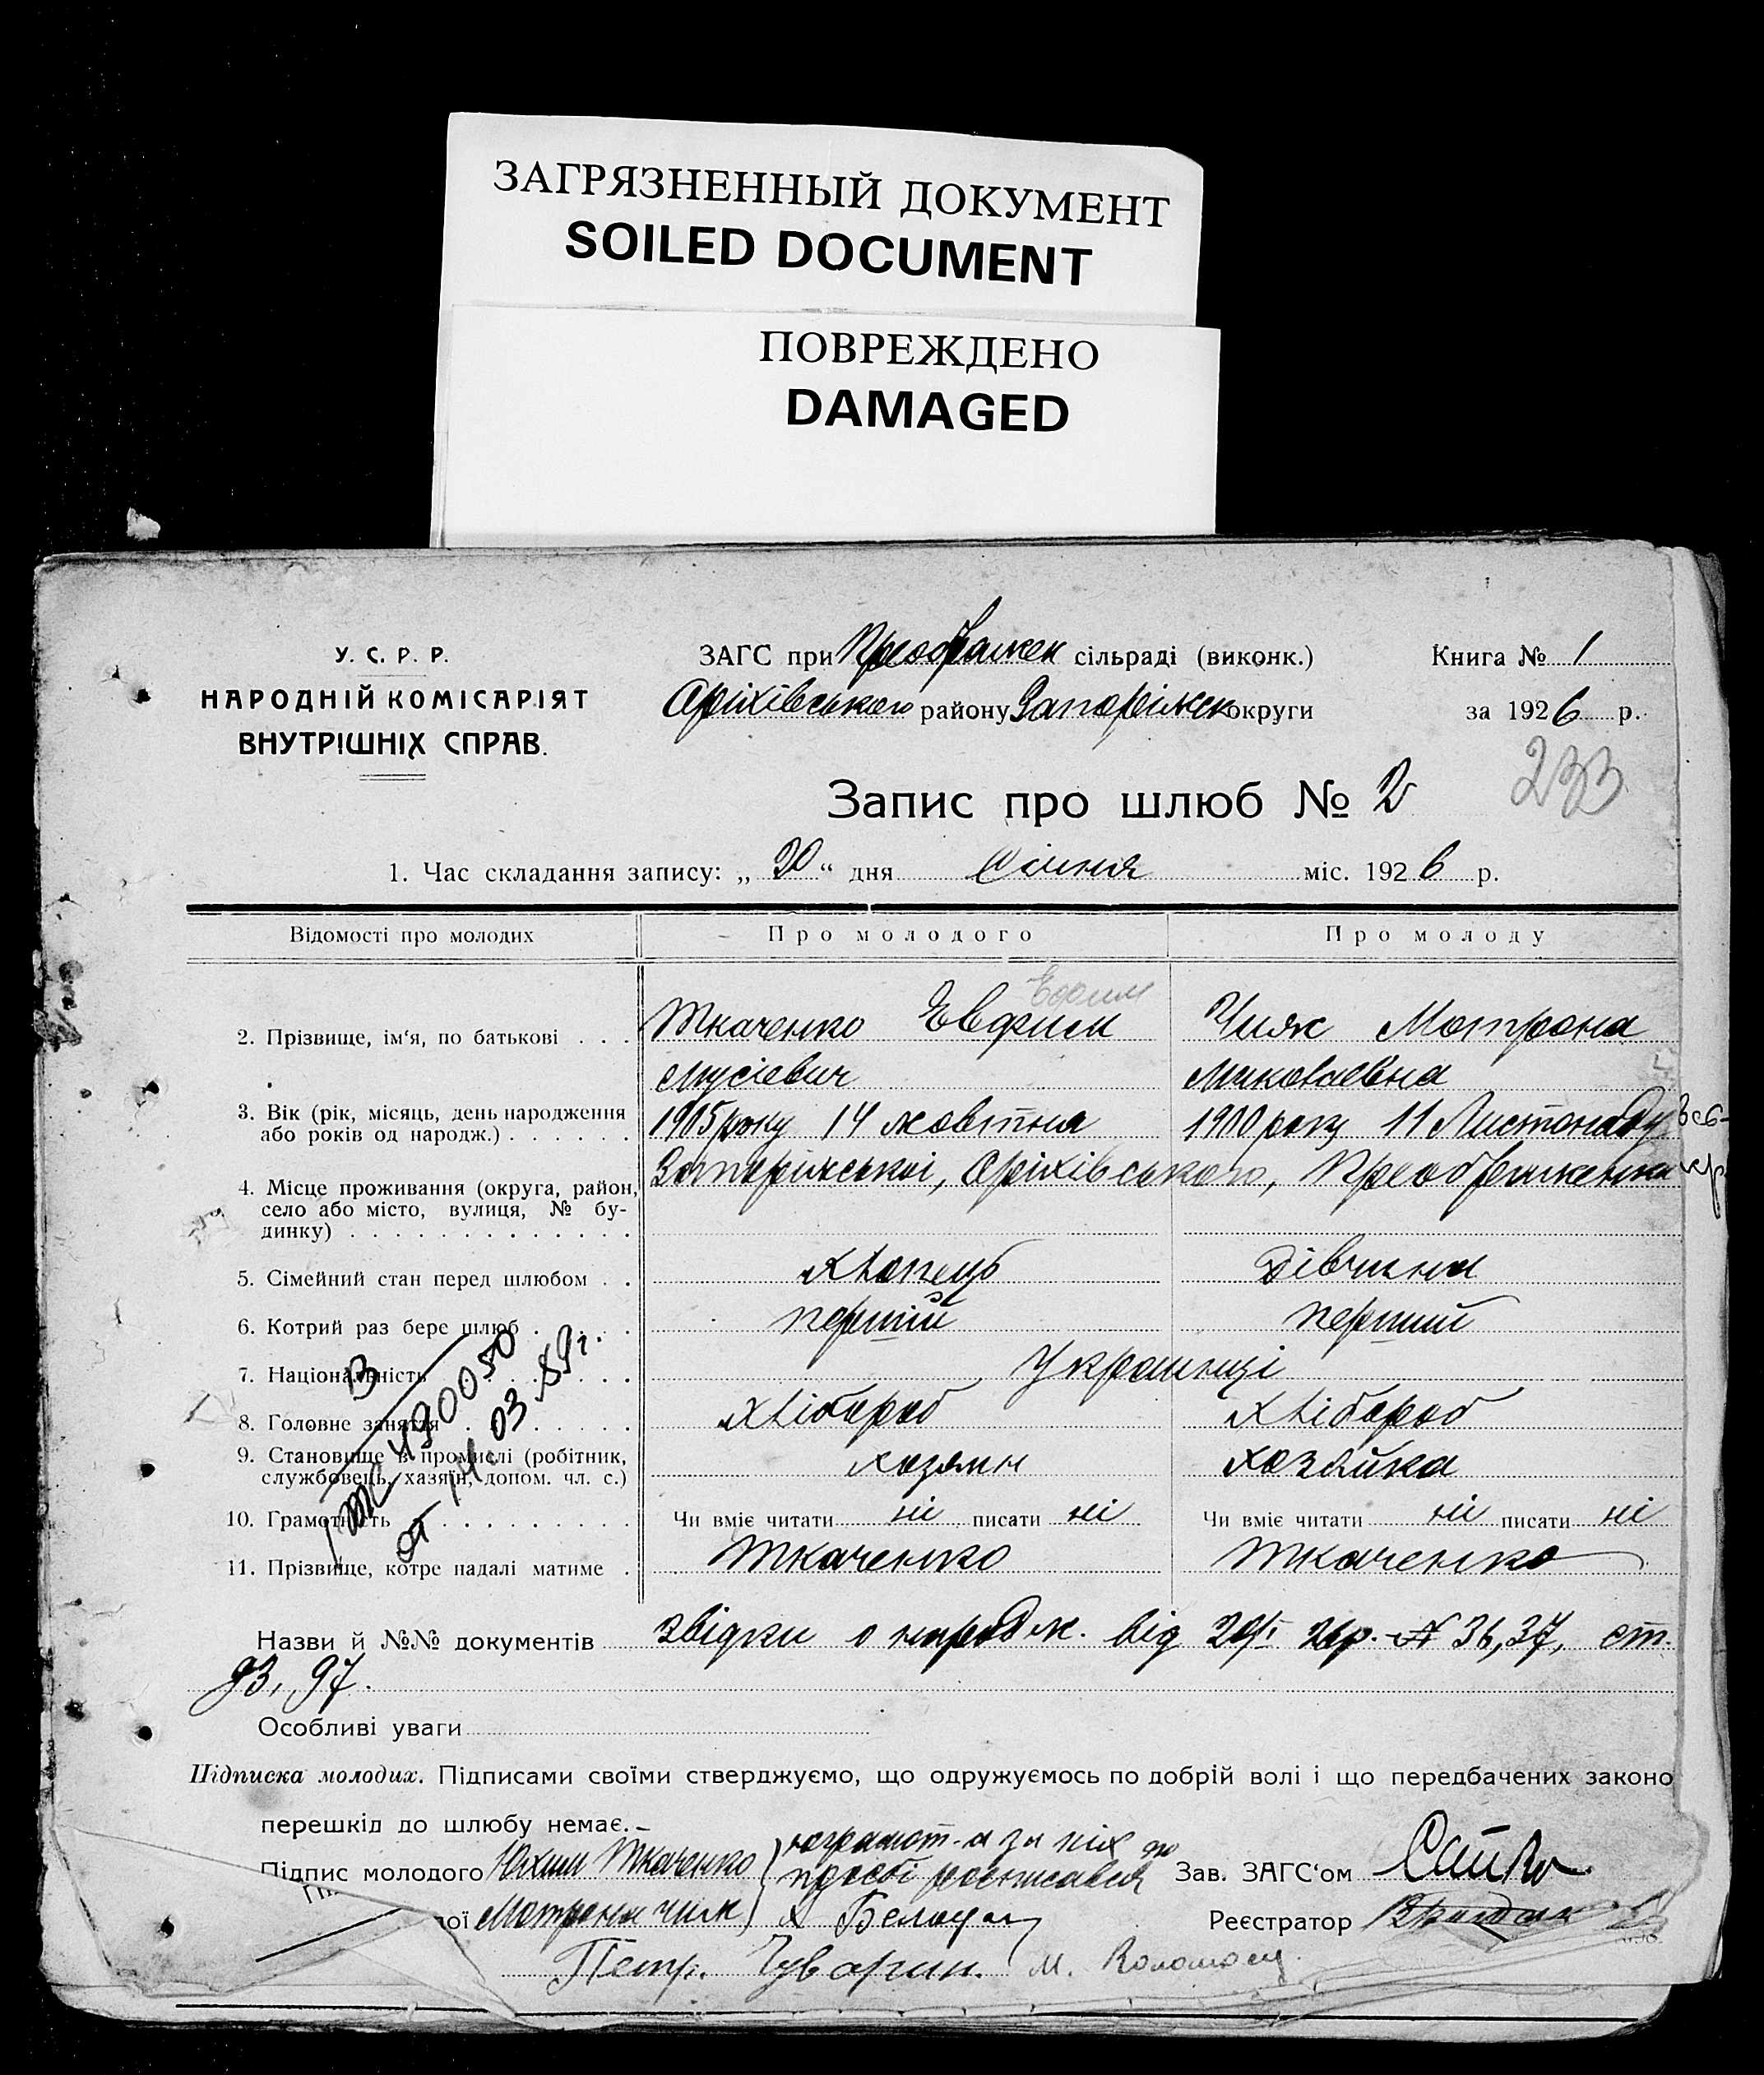 ЗАГРЯЗНЕННЫЙ ДОКУМЕНТ
SOILED DOCUMENT
ПОВРЕЖДЕНО
DAMAGED
У. С. Р. Р.
НАРОДНІЙ КОМІСАРІЯТ
ВНУТРІШНІХ СПРАВ.
ЗАГС при Преображен сільраді (виконк.)
Оріхівського району Запоріжск округи
Книга № 1
за 1926 р.
233
Запис про шлюб № 2
1. Час складання запису: „ 20 “ дня Січня міс. 1926 р.
Відомості про молодих Про молодого Про молоду
Ефим
2. Прізвище, ім‘я, по батькові . . . Ткаченко Евфим Чияк Мотрона
Мусіевич Миколаевна
3. Вік (рік, місяць, день народження 1905 року 14 жовтня 1900 року 11 Листопаду
або років од народж.) . . . . . .
4. Місце проживання (округа, район, Запоріжської, Оріхівського, Преображенка
село або місто, вулиця, № бу-
динку) . . . . . . . . . . . . .
5. Сімейний стан перед шлюбом . . Хлопець Дівчина
6. Котрий раз бере шлюб . . . . перший перший
7. Національність . . . . . . Украинці
8. Головне заняття . . . . . . Хлібороб Хлібороб
9. Становище в промислі (робітник, хозяин хозяйка
службовець, хазяїн, допом. чл. с.)
10. Грамотність . . . . . . . . . Чи вміє читати ні писати ні Чи вміє читати ні писати ні
11. Прізвище, котре надалі матиме . Ткаченко Ткаченко
490050
от 14.03.89г.
Назви й №№ документів звідки о народж. від 20/І 26р. № 36, 37, ст.
93, 97.
Особливі уваги
Підписка молодих. Підписами своїми стверджуємо, що одружуємось по добрій волі і що передбачених законо
перешкід до шлюбу немає.
Підпис молодого Юхим Ткаченко неграмот-а за них по
Зав. ЗАГС‘ом
просбі росписався
ої Мотрона Чияк
Реєстратор
Петр. Чуварин. М. Коломоец